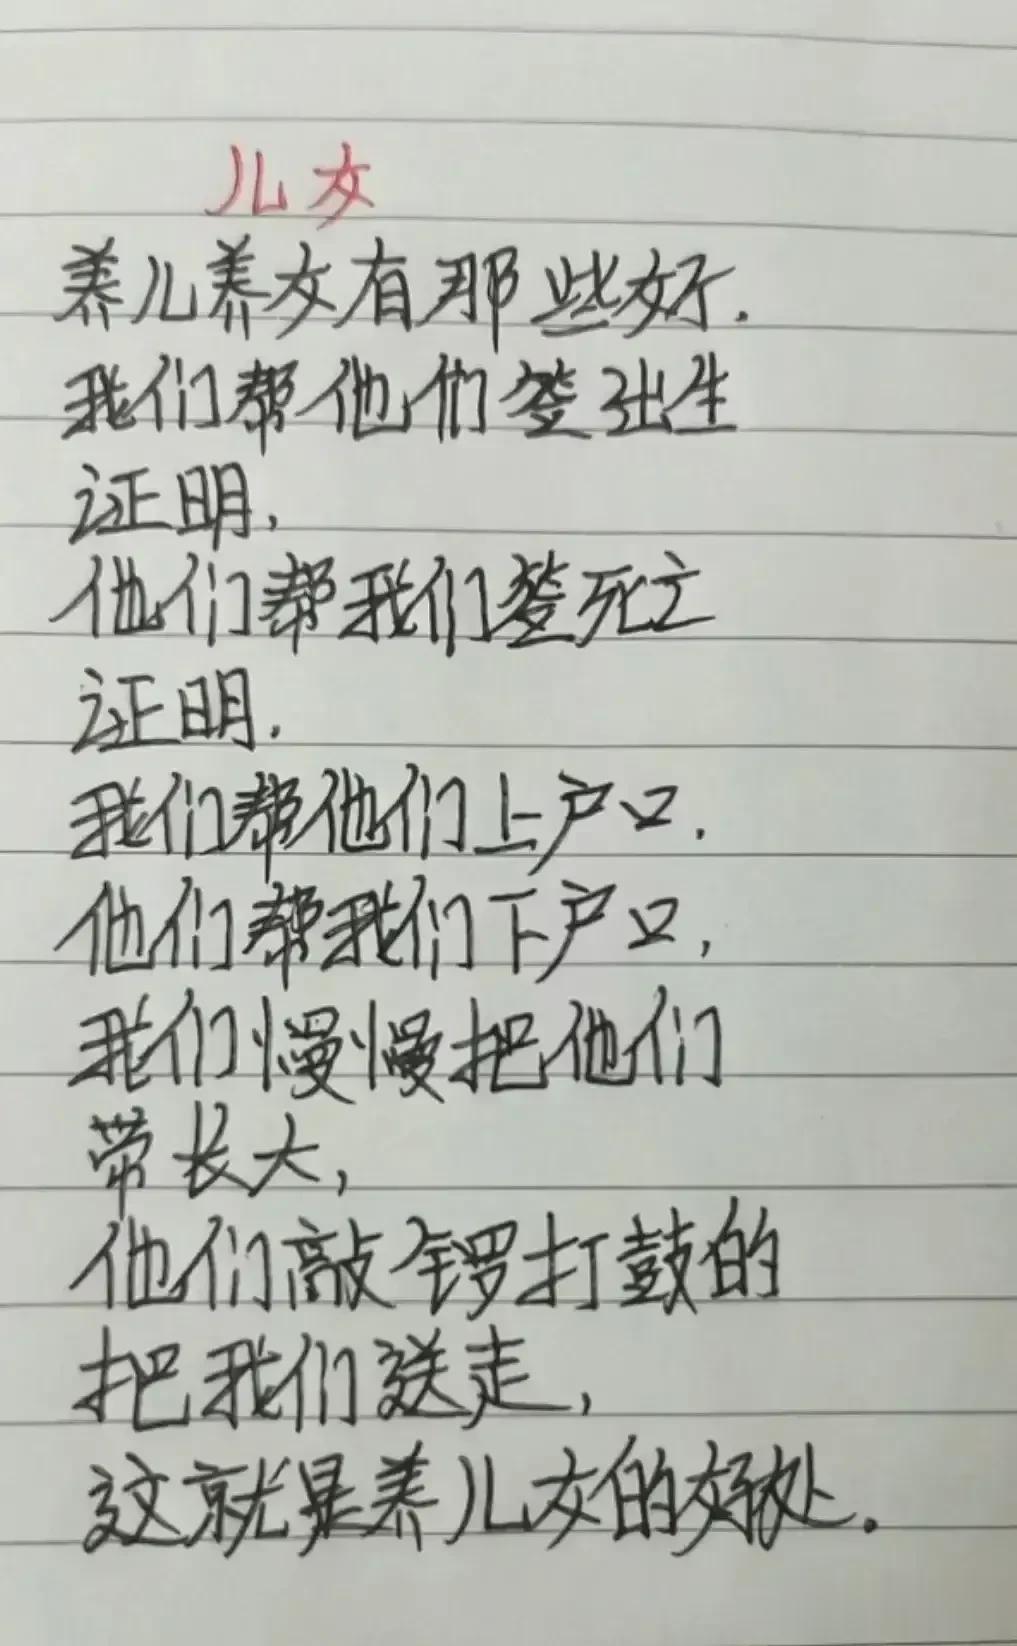 儿女
养儿养女有那些好.
我们帮他们签出生
证明,
他们帮我们签死亡
证明.
我们帮他们上户口.
他们帮我们下户口,
我们慢慢把他们
带长大,
他们敲锣打鼓的
把我们送走,
这就是养儿女的好处.